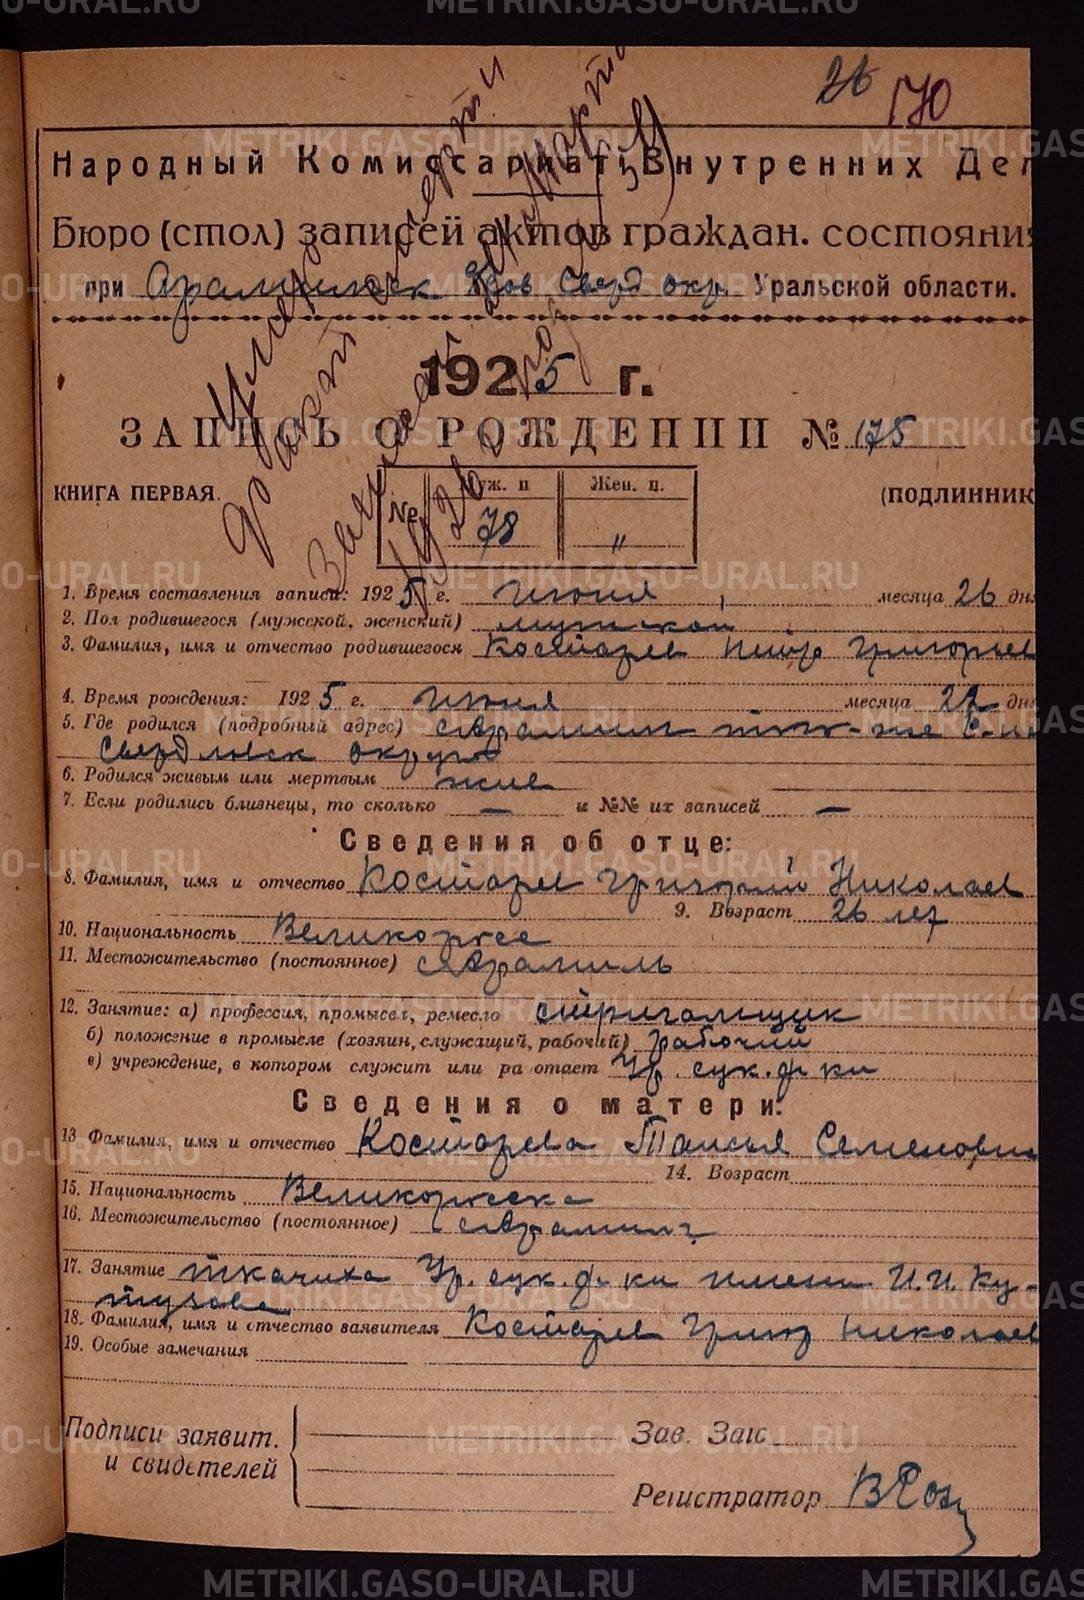 METRIKI.GASO-URAL.RU
26 170
Народный Комиссариат Внутренних Дел
Бюро (стол) записей актов граждан. состояния
при Арамильск Сверд окр. Уральской области.
1925 г.
ЗАПИСЬ О РОЖДЕНИИ № 175
КНИГА ПЕРВАЯ. (ПОДЛИННИК
№ Муж. п Жен. п.
78 "
Умер
факт смерти
записан
1926
1. Время составления записи: 1925 г. июня месяца 26 дня
2. Пол родившегося (мужской, женский) мужской
3. Фамилия, имя и отчество родившегося Костарев Петр Григорьев
4. Время рождения: 1925 г. июня месяца 22 дня
5. Где родился (подробный адрес) с. Арамиль
Свердловск округа
6. Родился живым или мертвым жив
7. Если родились близнецы, то сколько — и №№ их записей —
Сведения об отце:
8. Фамилия, имя и отчество Костарев Григорий Николаев
9. Возраст 26 лет
10. Национальность Великорусс
11. Местожительство (постоянное) с Арамиль
12. Занятие: а) профессия, промысел, ремесло стригальщик
б) положение в промысле (хозяин, служащий, рабочий) рабочий
в) учреждение, в котором служит или ра отает Ур. сук. ф-ки
Сведения о матери:
13 Фамилия, имя и отчество Костарева Таисья Семеновна
14. Возраст
15. Национальность Великорусска
16. Местожительство (постоянное) с Арамиль
17. Занятие ткачиха Ур. сук. ф-ки имени И. И. Ку-
тузова
18. Фамилия, имя и отчество заявителя Костарев Григор Николаев
19. Особые замечания
Подписи заявит.
и свидетелей
Зав. Загс
Регистратор